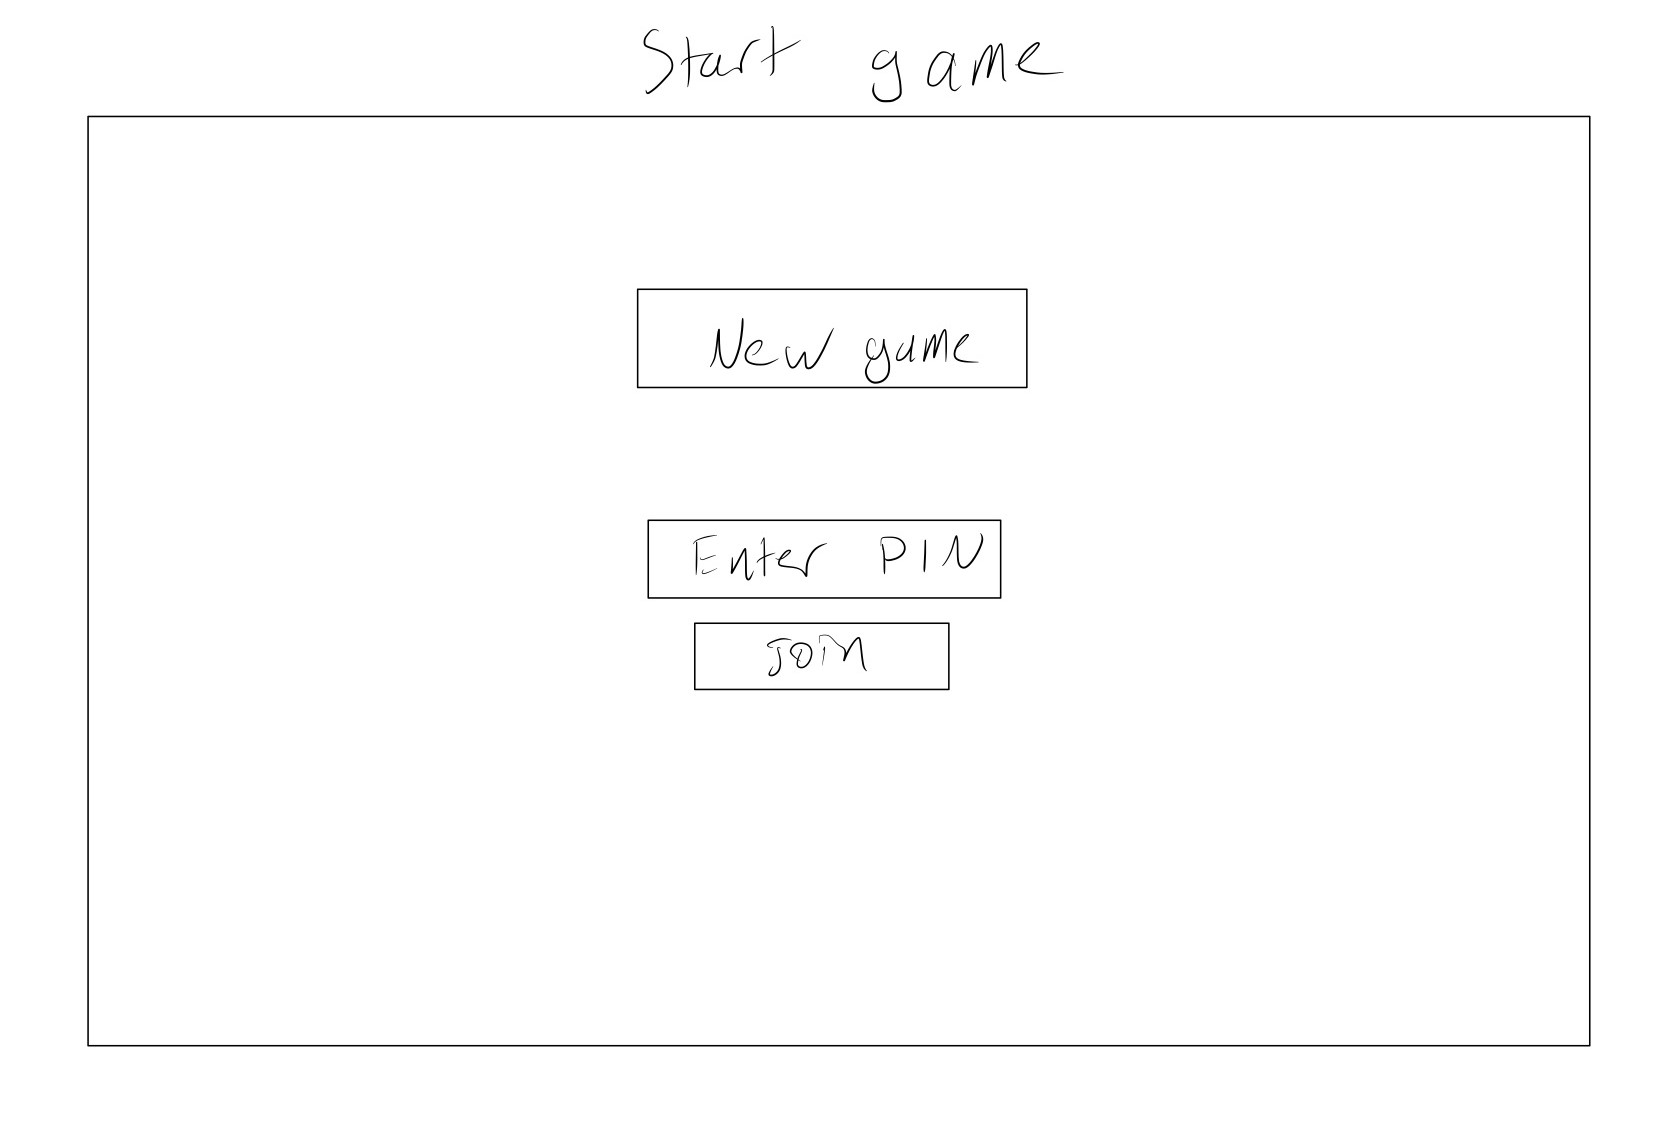 Start game
New game
Enter PIN
Join